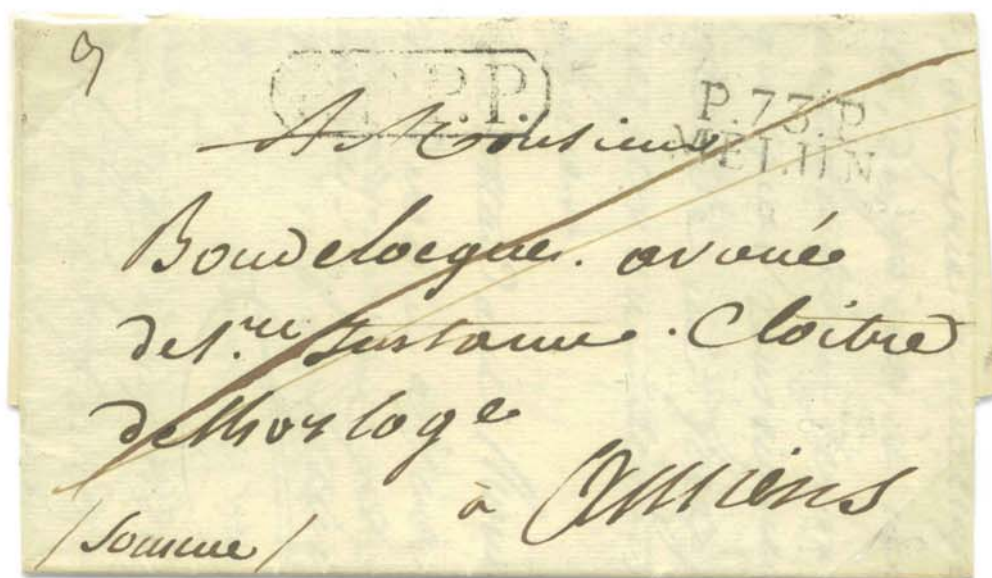 P.P.P.P.
P.73.P
MELUN
A Monsieur
Boudelocque. avoué
de 1.re Instance. Cloitre
de lhorloge
à Amiens
/ Somme /